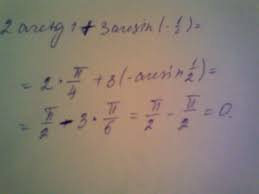 2 arctg 1 + 3 arcsin (-1/2) =
= 2 * π/4 + 3(-arcsin 1/2) =
= π/2 - 3 * π/6 = π/2 - π/2 = 0.